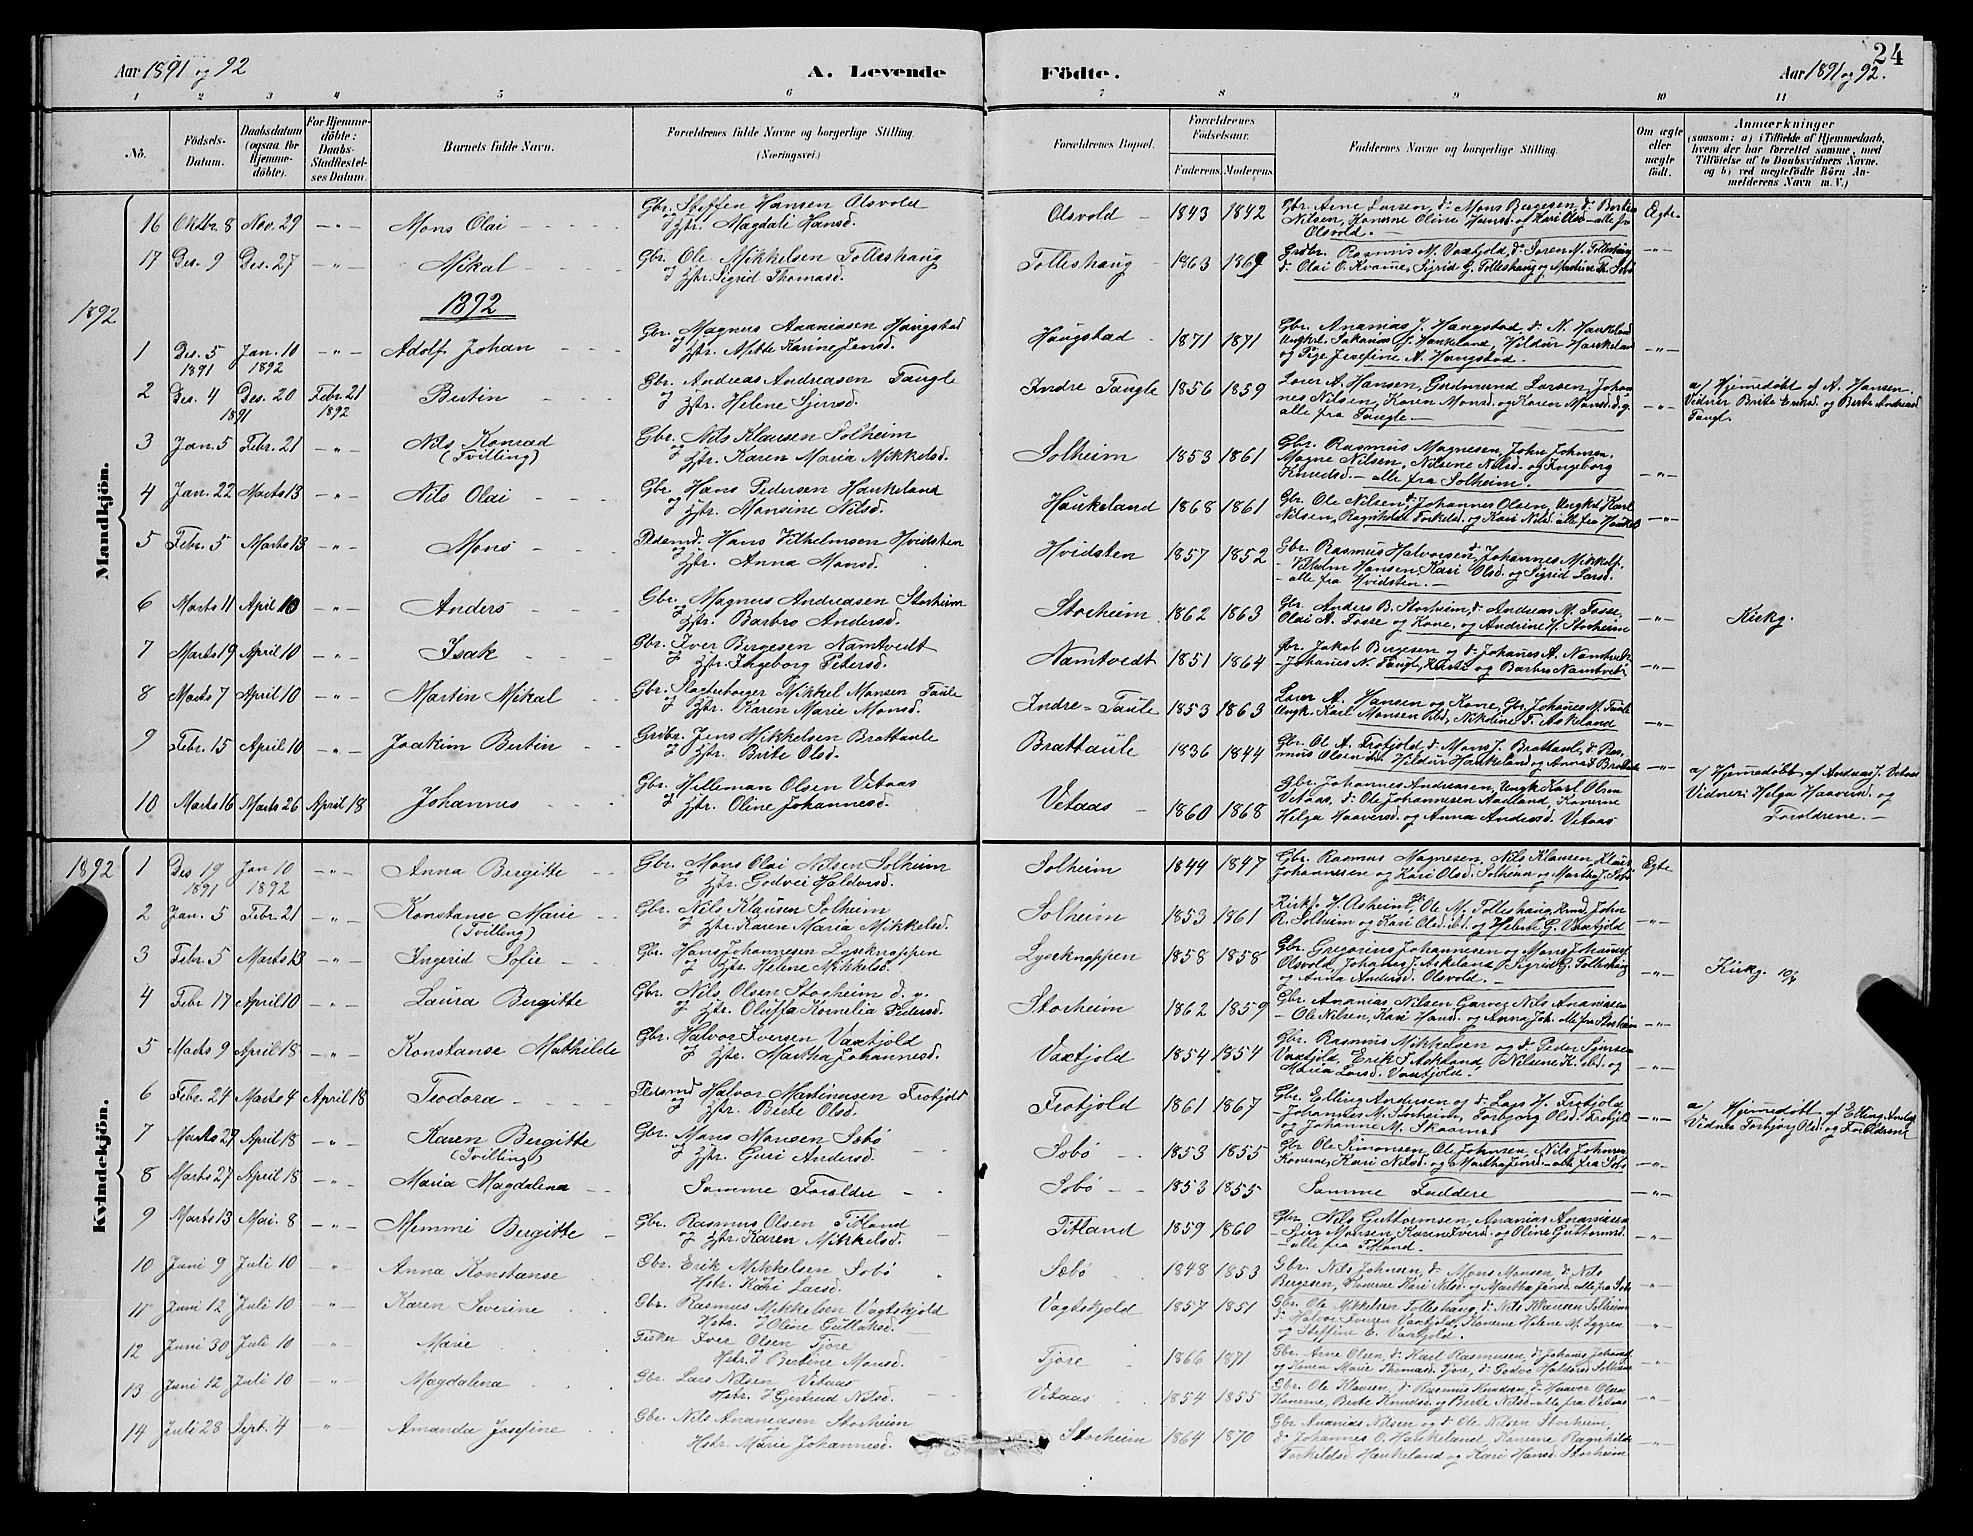 24
Aar 1891 og 92
A. Levende
Födte.
Aar 1891 og 92.
1 2 3 4 5 6 7 8 9 10 11
No.
Födsels-Datum.
Daabsdatum (ogsaa for Hjemme-döbte).
For Hjemme-döbte: Daabs-Stadfæstel-ses Datum.
Barnets fulde Navn.
Forældrenes fulde Navne og borgerlige Stilling. (Næringsvei.)
Forældrenes Bopæl.
Forældrenes Födselsaar.
Faderens. Moderens.
Faddernes Navne og borgerlige Stilling.
Om ægte eller uægte födt.
Anmærkninger
(saasom: a) i Tilfælde af Hjemmedaab, hvem der har forrettet samme, med Tilföielse af to Daabsvidners Navne, og b) ved uægtefödte Börn Anmelderens Navn m. V.)
Mandkjön.
16 Oktbr. 8 Nov. 29 -"- Mons Olai Gbr. Steffen Hansen Olsvold og Hstr. Magdali Hansd. Olsvold 1843 1842 Gbr. Arne Larsen, do Mons Bergesen, Nilsen, Konerne Oline Hansd. og Kari Olsd. alle fra Olsvold. Ægte
17 Des. 9 Des. 27 -"- Mikal Gbr. Ole Mikkelsen Tolleshaug og Hstr. Sigrid Thomasd. Tolleshaug 1863 1869 Rasmus M. Vaxtjold, do Søren M. Tolleshaug do Olai O. Kvamme, Sigrid G. Tolleshaug og -"-
1892 1892
1 Des. 5 1891 Jan. 10 1892 -"- Adolf Johan Gbr. Magnus Ananiasen Hangstad og Hstr. Mette Karine Jensd. Hangstad 1871 1871 Gbr. Ananias J. Hangstad, do N. Haukeland Ungkl. Sakarias J. Haukeland, Hildur Haukeland og Pige Josefine A. Hangstad. -"-
2 Des. 4 1891 Des. 20 Febr. 21 1892 Bertin Gbr. Andreas Andreasen Taugle og Hstr. Helene Sjursd. Indre Taugle 1856 1859 Lærer A. Hansen, Gudmund Larsen, Johannes Nilsen, Karen Monsd. og Karen Monsd. d.y. alle fra Taugle -"- a/ Hjemmedøbt af A. Hansen. Vidner Brite Eriksd. og Berte Andreasd
3 Jan. 5 Febr. 21 -"- Nils Konrad (Tvilling) Gbr. Nils Klausen Solheim og Hstr. Karen Maria Mikkelsd. Solheim 1853 1861 Gbr. Rasmus Magnesen, John Johnsen, Magne Nilsen, Nilsine Nilsd. og Ingeborg Knudsd. alle fra Solheim. -"-
4 Jan. 22 Marts 13 -"- Nils Olai Gbr. Hans Pedersen Haukeland og Hstr. Monsine Nilsd. Haukeland 1868 1861 Gbr. Ole Nilsen, do Johannes Olsen, Ungkl Karl Nilsen, Ragnhild Torkelsd. og Kari Nilsd. alle fra Haukel. -"-
5 Febr. 5 Marts 13 -"- Mons Hans Vilhelmsen Hvidsten og Hstr. Anna Monsd. Hvidsten 1857 1852 Gbr. Rasmus Halvorsen, do Johannes Mikkels. Vilhelm Hansen, Kari Olsd. og Sigrid Larsd. alle fra Hvidsten.
6 Marts 11 April 10 -"- Anders Gbr. Magnus Andreasen Storheim og Hstr. Barbro Andersd. Storheim 1862 1863 Gbr. Anders B. Storheim, do Andreas M. Fosse, Olai A. Fosse og Kone, og Andrine H. Storheim -"- Kirkg.
7 Marts 19 April 10 -"- Isak Gbr. Iver Bergesen Namtvedt og Hstr. Ingeborg Petersd. Namtvedt 1851 1864 Gbr. Jakob Bergesen og do Johanes A. Namtvedt, Johanes N. -"-
8 Marts 7 April 10 -"- Martin Mikal Gbr. Mikkel Monsen Taule og Hstr. Karen Marie Monsd. Indre-Taule 1853 1863 Lærer A. Hansen og Kone, Gbr. Johanes M. Taule Ungk. Karl Monsen ibd, Nikoline T. Askeland -"-
9 Febr. 15 April 10 -"- Joakim Bertin Grdbr. Jens Mikkelsen Brattaule og Hstr. Brite Olsd. Brattaule 1836 1844 Gbr. Ole A. Frotjold, do Mons J. Brattaul, do Rasmus Olsen do. Hildur Haukeland og Anna -"-
10 Marts 16 Marts 26 April 18 Johannes Gbr. Hilleman Olsen Vetaas og Hstr. Oline Johannesd. Vetaas 1860 1868 Gbr. Johannes Andreasen, Ungk Karl Olsen Vetaas, do Ole Johannesen Aadland, Konerne Helga Haaversd. og Anna Andersd. Vetaas a/ Hjemmedøbt af Andreas J. Vetaas Vidner: Helga Haaversd. og Forældrene.
Kvindekjön.
1892 1 Des 19 1891 Jan 10 1892 -"- Anna Bergitte Gbr. Mons Olai Nilsen Solheim og Hstr. Godvei Haldorsd. Solheim 1844 1847 Gbr. Rasmus Magnesen, Nils Klausen, Johannesen og Kari Olsd. Solheim og Martha J. Sobø Egte
2 Jan. 5 Febr. 21 -"- Konstanse Marie (Tvilling) Gbr. Nils Klausen Solheim og Hstr. Karen Maria Mikkelsd. Solheim 1853 1861 Kirks. H. Asheim, Gbr Ole M. Tolleshaug, John R. Solheim og Kari Olsd. ibd. og Helene G. Vaxtjold -"-
3 Febr. 5 Marts 13 -"- Ingerid Sofie Gbr. Hans Johannesen Lyseknappen og Hstr. Helene Mikkelsd. Lyseknappen 1858 1858 Gbr. Gregorius Johannesen og Mons Johannes. Olsvold, Johanes J. Askeland, Sigrid G. Tolleshaug og Anna Andersd. Olsvold. -"- Kirkg.
4 Febr. 17 April 10 -"- Laura Bergitte Gbr. Nils Olsen Storheim d. y. og Hstr. Oluffa Kornelia Pedersd. Storheim 1862 1859 Gbr. Ananias Nilsen, Garver Nils Ananiasen Ole Nilsen, Kari Hansd. og Anna Joh. alle fra Storheim -"-
5 Marts 9 April 18 -"- Konstanse Mathilde Gbr. Halvor Iversen Vaxtjold og Hstr. Martha Johannesd. Vaxtjold 1854 1854 Gbr. Rasmus Mikkelsen og do Peder Sjurse- Vaxtjold, Erik T. Askland, Nilsine K. ibd. og Maria Larsd. Vaxtjold. -"-
6 Febr. 24 Marts 4 April 18 Teodora Halvor Martinusen Frotjold og Hstr. Berte Olsd. Frotjold 1861 1867 Gbr. Elling Andersen og do Lars H. Frotjold Johannes M. Storheim, Torbjørg Olsd. Frotjold og Johanne M. Skaarnes -"- a/ Hjemmedøbt af Elling Anders Vidner Torbjørg Olsd. og Forældrene
7 Marts 27 April 18 -"- Karen Bergitte (Tvilling) Gbr. Mons Monsen Sobø og Hstr. Guri Andersd. Sobø 1853 1855 Gbr Ole Simonsen, Ole Johnsen, Nils Johnsen Konerne, Kari Nilsd. og Martha Jensd. alle fra Sobø -"-
8 Marts 27 April 18 -"- Maria Magdalena Samme Forældre Sobø 1853 1855 Samme Faddere -"-
9 Marts 13 Mai. 8 -"- Memmi Bergitte Gbr. Rasmus Olsen Titland og Hstr. Karen Mikkelsd. Titland 1859 1860 Gbr. Nils Guttormsen, Ananias Ananiasen Sjur Monsen, Karen Iversd. og Oline Guttormsd. alle fra Titland. -"-
10 Juni 9 Juli 10 -"- Anna Konstanse Gbr. Erik Mikkelsen Sobø Hstr. Kari Larsd. Sæbø 1848 1853 Gbr. Nils Johnsen, do Mons Monsen, do Nils Bergesen, Konerne Kari Nilsd. og Martha Jensd. alle fra Sobø -"-
11 Juni 12 Juli 10 -"- Karen Severine Gbr. Rasmus Mikkelsen Vagtskjold Hstr. Oline Gullaksd. Vagtskjold 1857 1851 Gbr. Ole Mikkelsen Tolleshaug, do Nils Klausen Solheim do Halvor Iversen Vaxtjold, Konerne Helene M. Lygren og Steffine E. Vaxtjold. -"-
12 Juni 30 Juli 10 -"- Marie Fisker Iver Olsen Tjore Hstr. Bertine Monsd. Tjore 1866 1871 Gbr. Arne Olsen, do Karl Rasmusen, do Johannes og Konen Marie Thomasd. Tjore, do Godvø Haldorsd. Solheim -"-
13 Juni 12 Juli 10 -"- Magdalena Gbr. Lars Nilsen Vetaas Hstr. Gjertrud Nilsd. Vetaas 1854 1855 Gbr. Ole Klausen, do Rasmus Knudsen, do Haaver Olsen Konerne, Berte Knudsd. og Berte Nilsd. alle fra Vetaas -"-
14 Juli 28 Sept. 4 -"- Amanda Josefine Gbr. Nils Ananiasen Storheim Hstr. Marie Johannesd. Storheim 1864 1870 Gbr. Ananias Nilsen og do Ole Nilsen Storheim, do Johannes O. Haukeland, Konerne Ragnhilde Torkildsd. Haukeland og Kari Hansd. Storheim -"-